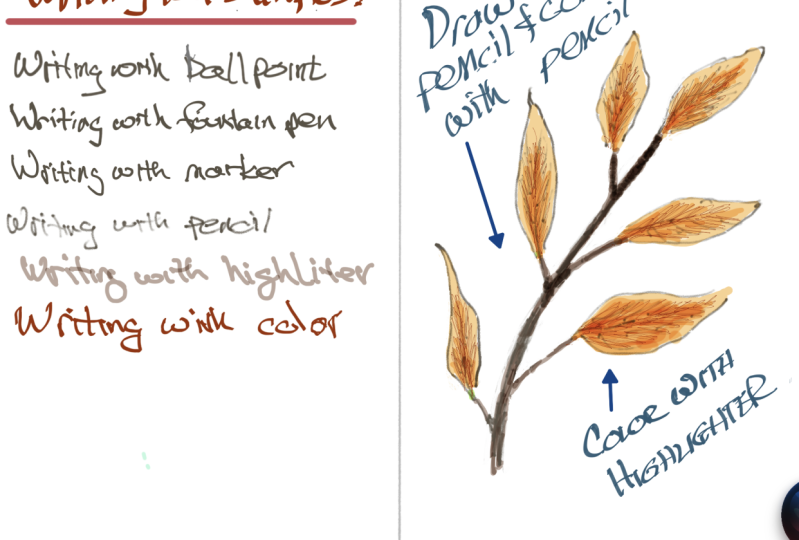 Writing with ballpoint
Writing with fountain pen
Writing with marker
Writing with pencil
Writing with highliter
Writing with color
Draw
pencil &
with pencil
Color with
Highlighter